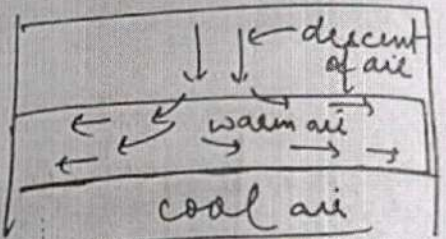 descent
of air
warm air
cool air